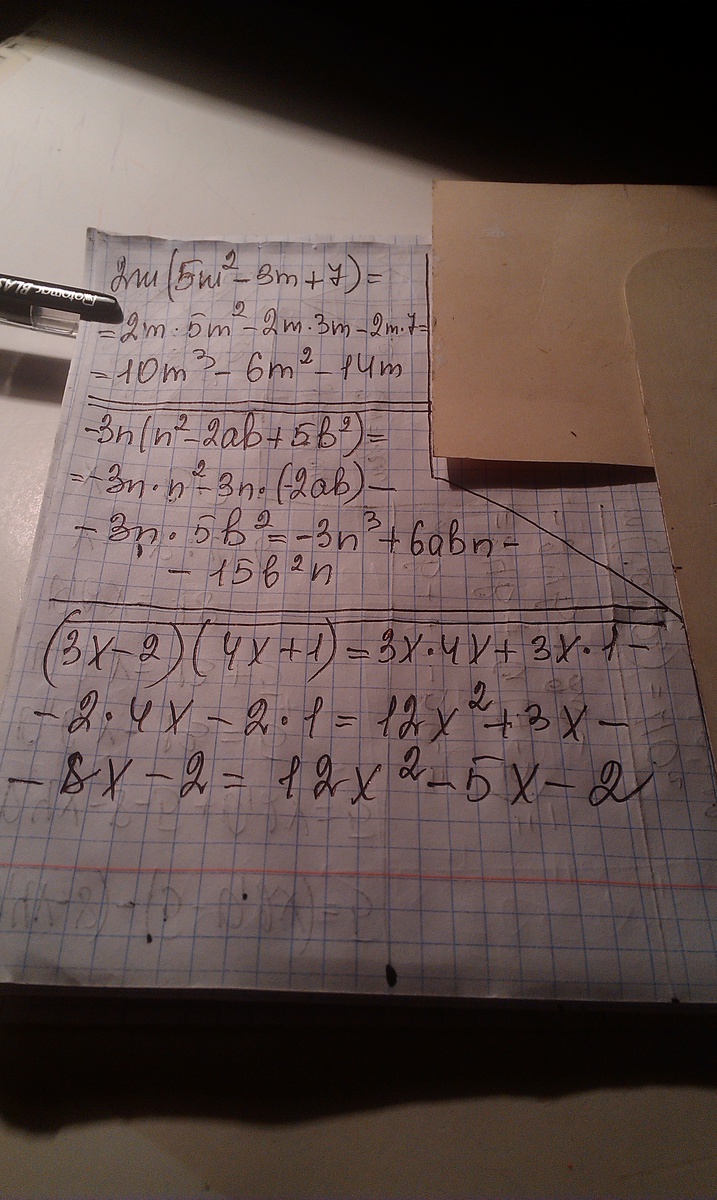 2m(5m²-3m+7)=
=2m·5m²-2m·3m-2m·7=
=10m³-6m²-14m
-3n(n²-2ab+5b²)=
=-3n·n²-3n·(-2ab)-
-3n·5b²=-3n³+6abn-
-15b²n
(3x-2)(4x+1)=3x·4x+3x·1-
-2·4x-2·1=12x²+3x-
-8x-2=12x²-5x-2